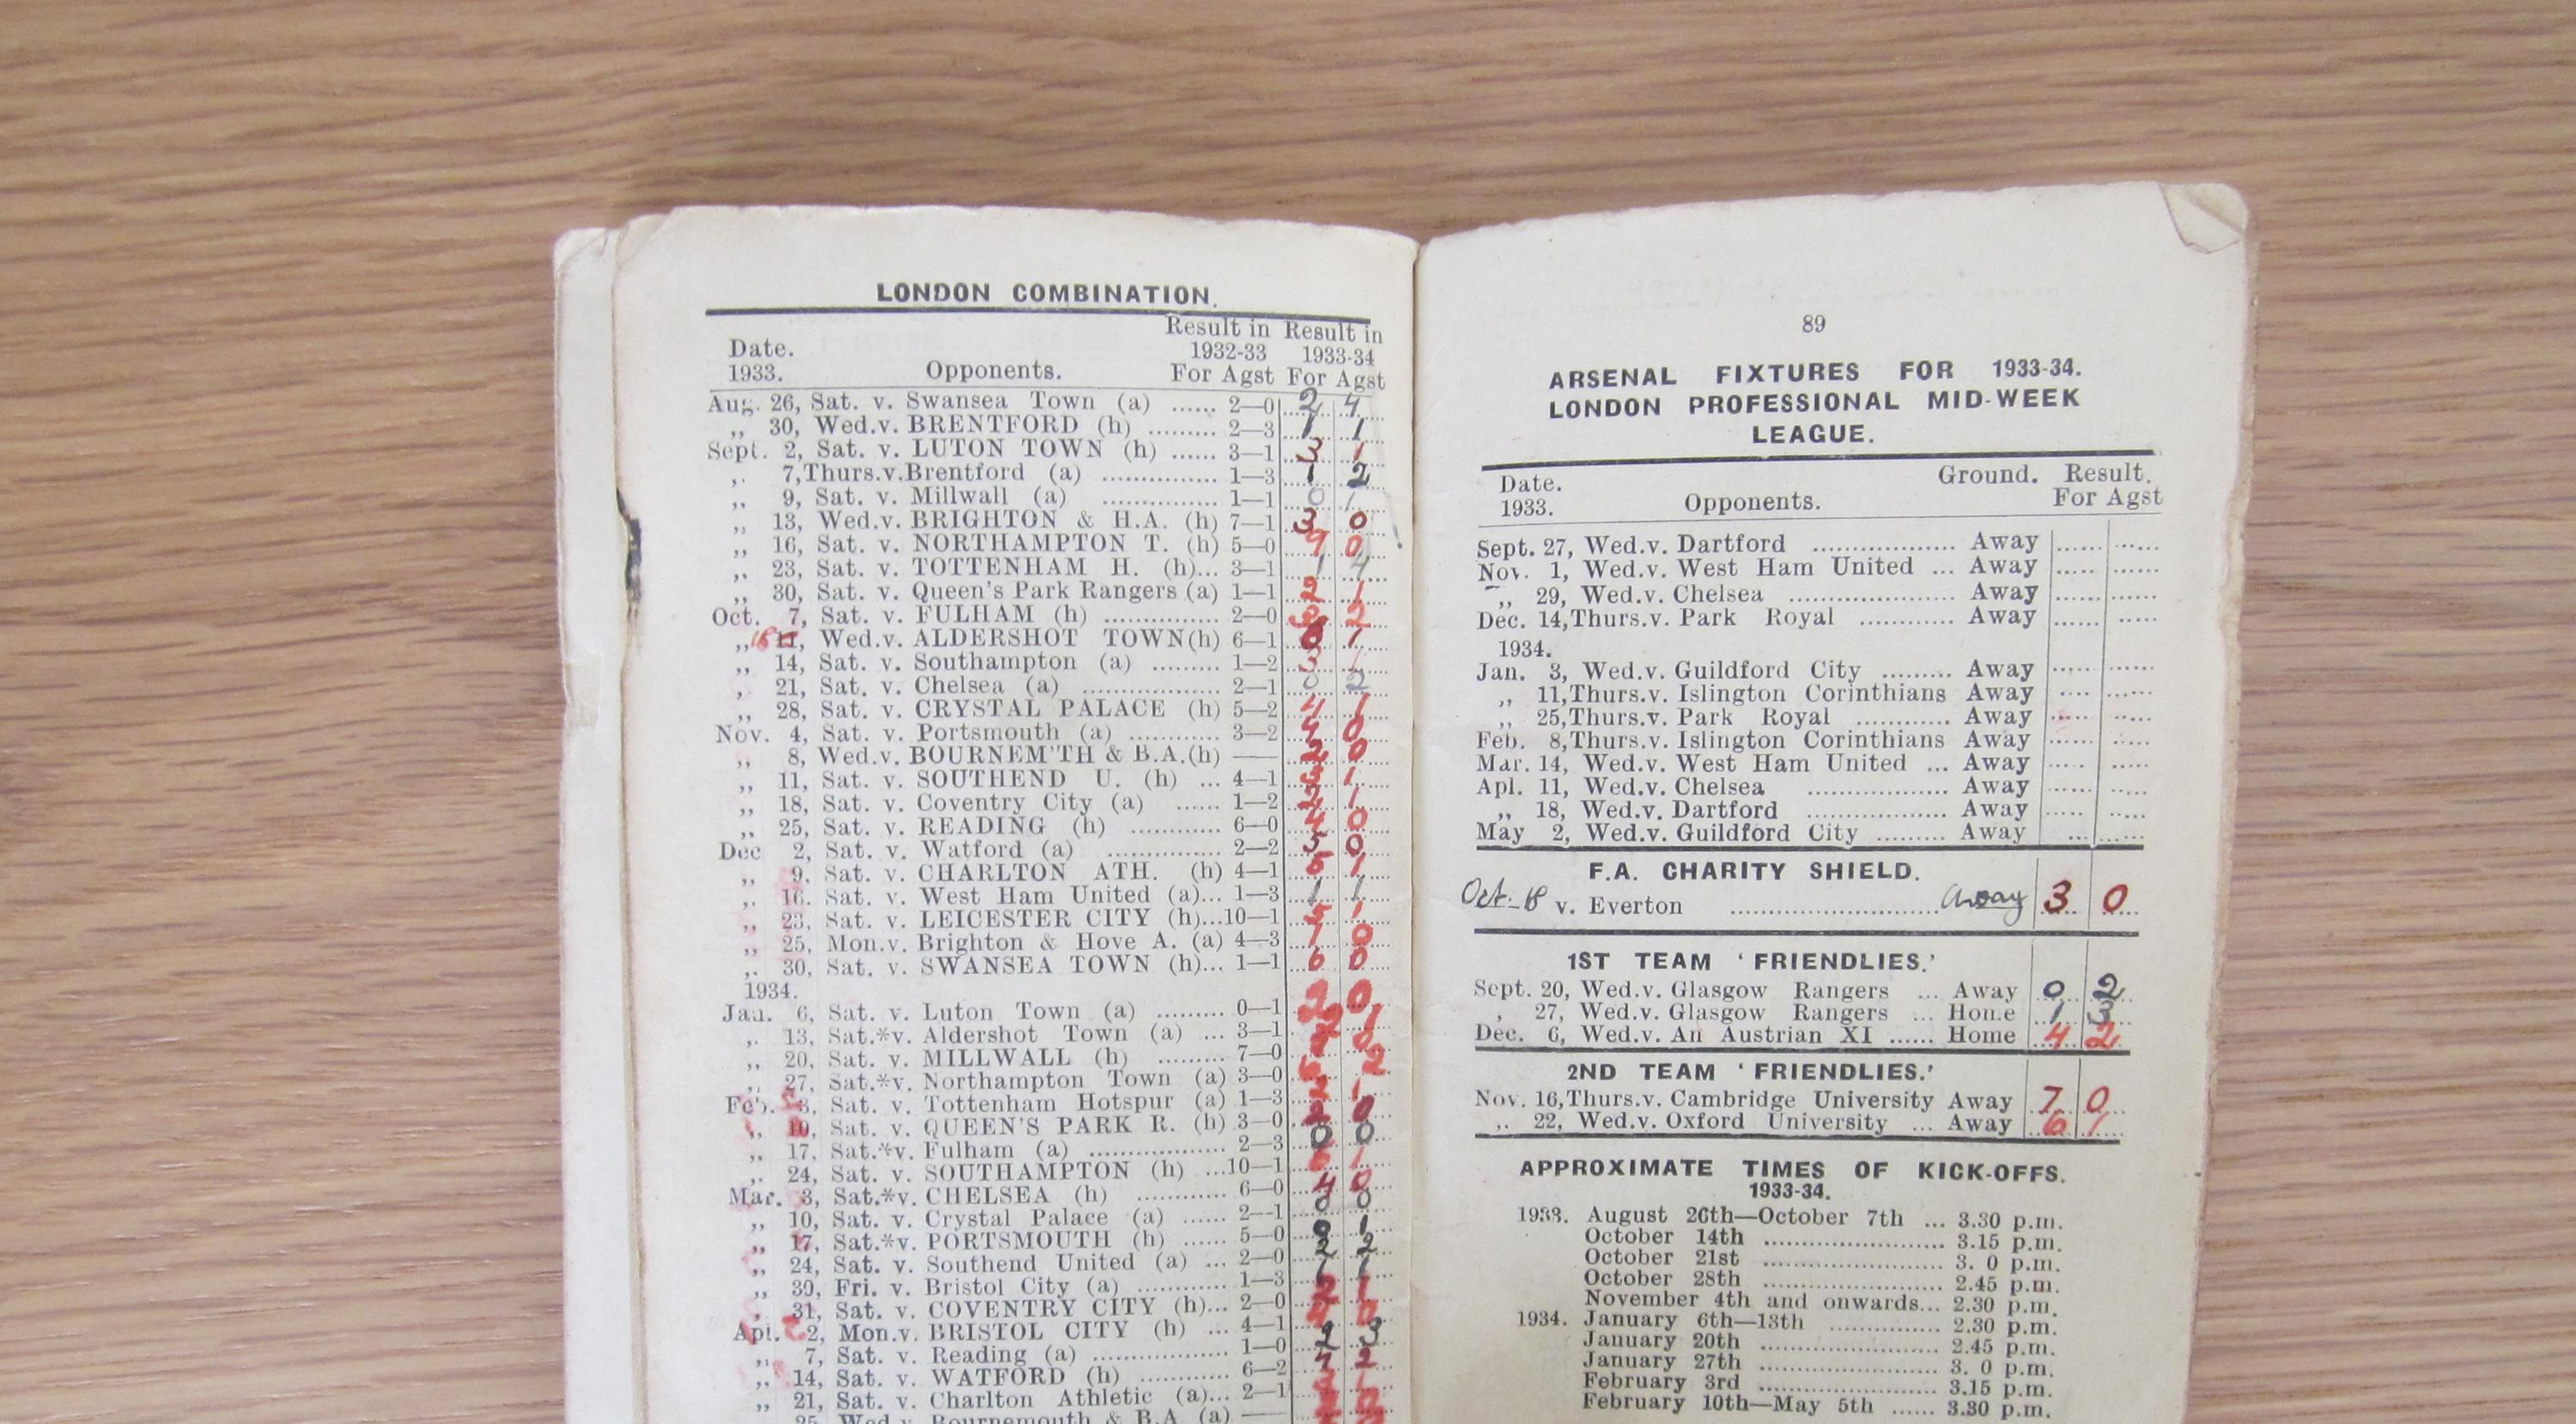 LONDON COMBINATION.
Result in Result in
Date. 1932-33 1933-34
1933. Opponents. For Agst For Agst
Aug. 26, Sat. v. Swansea Town (a) ...... 2—0 2 4
„ 30, Wed.v. BRENTFORD (h) ......... 2—3 1 1
Sept. 2, Sat. v. LUTON TOWN (h) ...... 3—1 3 1
„ 7,Thurs.v.Brentford (a) ............... 1—3 1 2
„ 9, Sat. v. Millwall (a) ............... 1—1 0 1
„ 13, Wed.v. BRIGHTON & H.A. (h) 7—1 3 0
„ 16, Sat. v. NORTHAMPTON T. (h) 5—0 9 0
„ 23, Sat. v. TOTTENHAM H. (h)... 3—1 1 4
„ 30, Sat. v. Queen's Park Rangers (a) 1—1 2 1
Oct. 7, Sat. v. FULHAM (h) ............... 2—0 2
„ 11, Wed.v. ALDERSHOT TOWN(h) 6—1 1
„ 14, Sat. v. Southampton (a) ......... 1—2 3 1
„ 21, Sat. v. Chelsea (a) .................. 2—1 0 2
„ 28, Sat. v. CRYSTAL PALACE (h) 5—2 4 1
Nov. 4, Sat. v. Portsmouth (a) ............ 3—2 0
„ 8, Wed.v. BOURNEM'TH & B.A.(h) —— 2 0
„ 11, Sat. v. SOUTHEND U. (h) ... 4—1 1
„ 18, Sat. v. Coventry City (a) ...... 1—2 1
„ 25, Sat. v. READING (h) ............ 6—0 4 0
Dec 2, Sat. v. Watford (a) ............... 2—2 0
„ 9, Sat. v. CHARLTON ATH. (h) 4—1 1
„ 16, Sat. v. West Ham United (a)... 1—3 1 1
„ 23, Sat. v. LEICESTER CITY (h)...10—1 1
„ 25, Mon.v. Brighton & Hove A. (a) 4—3 0
„ 30, Sat. v. SWANSEA TOWN (h)... 1—1 6 0
1934.
Jan. 6, Sat. v. Luton Town (a) ......... 0—1 0
„ 13, Sat.*v. Aldershot Town (a) ... 3—1 1
„ 20, Sat. v. MILLWALL (h) ......... 7—0 0
„ 27, Sat.*v. Northampton Town (a) 3—0 2
Feb. 3, Sat. v. Tottenham Hotspur (a) 1—3 1
„ 10, Sat. v. QUEEN'S PARK R. (h) 3—0 0
„ 17, Sat.*v. Fulham (a) .................. 2—3 0 0
„ 24, Sat. v. SOUTHAMPTON (h) ...10—1 1
Mar. 3, Sat.*v. CHELSEA (h) ............ 6—0 4 0
„ 10, Sat. v. Crystal Palace (a) ...... 2—1 0 0
„ 17, Sat.*v. PORTSMOUTH (h) ...... 5—0 1
„ 24, Sat. v. Southend United (a) ... 2—0 2 2
„ 30, Fri. v. Bristol City (a) ............ 1—3 1 1
„ 31, Sat. v. COVENTRY CITY (h)... 2—0 2 1
Apl. 2, Mon.v. BRISTOL CITY (h) ... 4—1 0
„ 7, Sat. v. Reading (a) .................. 1—0 2 3
„ 14, Sat. v. WATFORD (h) ............ 6—2 2
„ 21, Sat. v. Charlton Athletic (a)... 2—1
25, Wed.v. Bournemouth & B.A (a) ——
89
ARSENAL FIXTURES FOR 1933-34.
LONDON PROFESSIONAL MID-WEEK
LEAGUE.
Date. Ground. Result.
1933. Opponents. For Agst
Sept. 27, Wed.v. Dartford .................. Away
Nov. 1, Wed.v. West Ham United ... Away
„ 29, Wed.v. Chelsea .................. Away
Dec. 14,Thurs.v. Park Royal ............ Away
1934.
Jan. 3, Wed.v. Guildford City ......... Away
„ 11,Thurs.v. Islington Corinthians Away
„ 25,Thurs.v. Park Royal ............ Away
Feb. 8,Thurs.v. Islington Corinthians Away
Mar. 14, Wed.v. West Ham United ... Away
Apl. 11, Wed.v. Chelsea .................. Away
„ 18, Wed.v. Dartford .................. Away
May 2, Wed.v. Guildford City ......... Away
F.A. CHARITY SHIELD.
Oct-18 v. Everton ........................... Away 3 0
1ST TEAM 'FRIENDLIES.'
Sept. 20, Wed.v. Glasgow Rangers ... Away 0 2
„ 27, Wed.v. Glasgow Rangers ... Home 1 3
Dec. 6, Wed.v. An Austrian XI ...... Home 4 2
2ND TEAM 'FRIENDLIES.'
Nov. 16,Thurs.v. Cambridge University Away 7 0
„ 22, Wed.v. Oxford University ... Away 6 1
APPROXIMATE TIMES OF KICK-OFFS.
1933-34.
1933. August 26th—October 7th ... 3.30 p.m.
October 14th ........................ 3.15 p.m.
October 21st ........................ 3. 0 p.m.
October 28th ........................ 2.45 p.m.
November 4th and onwards... 2.30 p.m.
1934. January 6th—13th ............... 2.30 p.m.
January 20th ........................ 2.45 p.m.
January 27th ........................ 3. 0 p.m.
February 3rd ........................ 3.15 p.m.
February 10th—May 5th ...... 3.30 p.m.